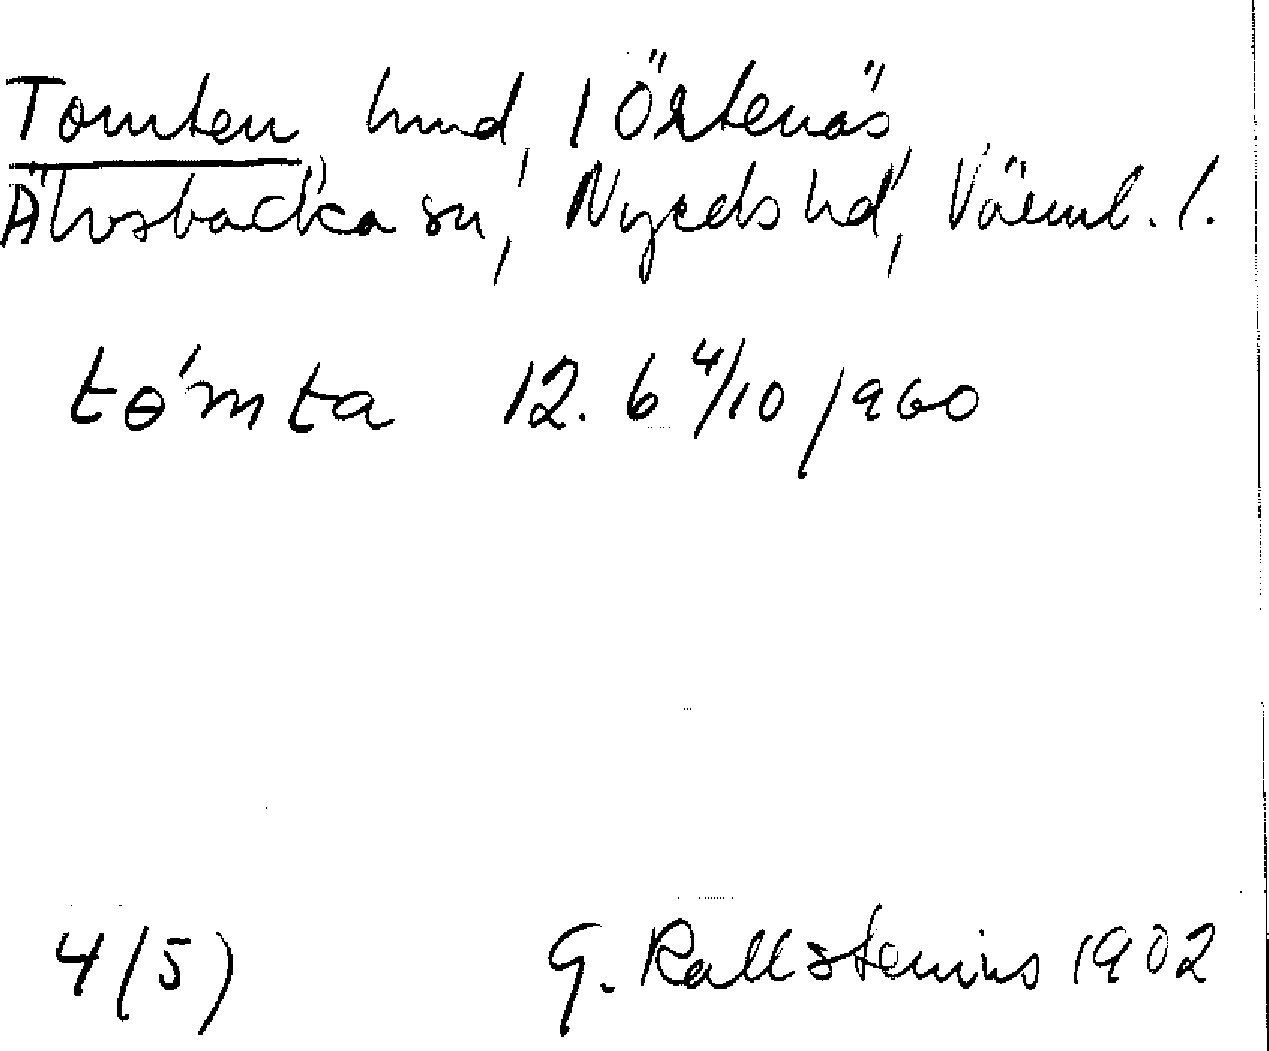 Tomten hmd, 1 Örtenäs,
Älvsbacka sn, Nyeds hd, Värml. l.
tɵ́mta 12. 6 4/10 1960
4(5) G. Kallstenius 1902